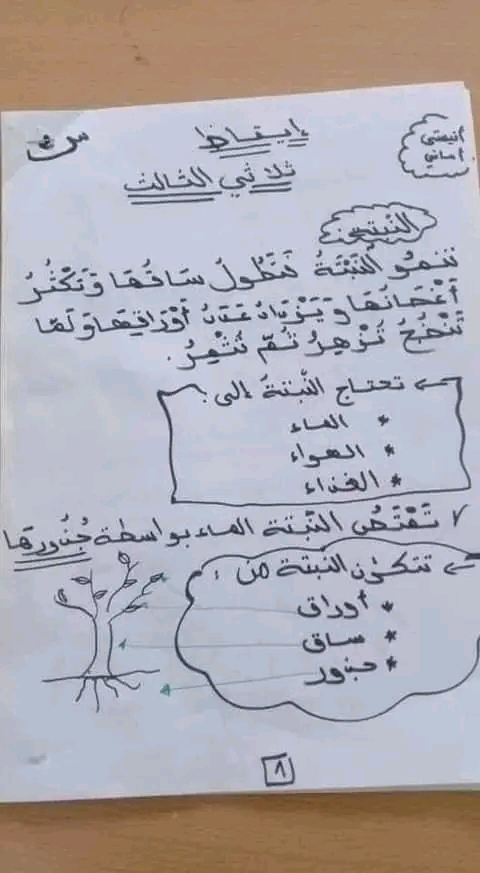 إيقاظ
أنيستي
أماني
ثلاثي الثالث
النبتة
تَنْمُو النَّبْتَةُ فَتَطُولُ سَاقُهَا وَتَكْثُرُ
أَغْصَانُهَا وَيَزْدَادُ عَدَدُ أَوْرَاقِهَا وَلَمَّا
تَنْضُجُ تُزْهِرُ ثُمَّ تُثْمِرُ.
← تحتاج النّبتة إلى:
* الماء
* الهواء
* الغذاء
√ تَمْتَصُّ النّبتة الماء بواسطة جُذُورِهَا
← تتكوّن النبتة من:
* أوراق
* ساق
* جذور
1